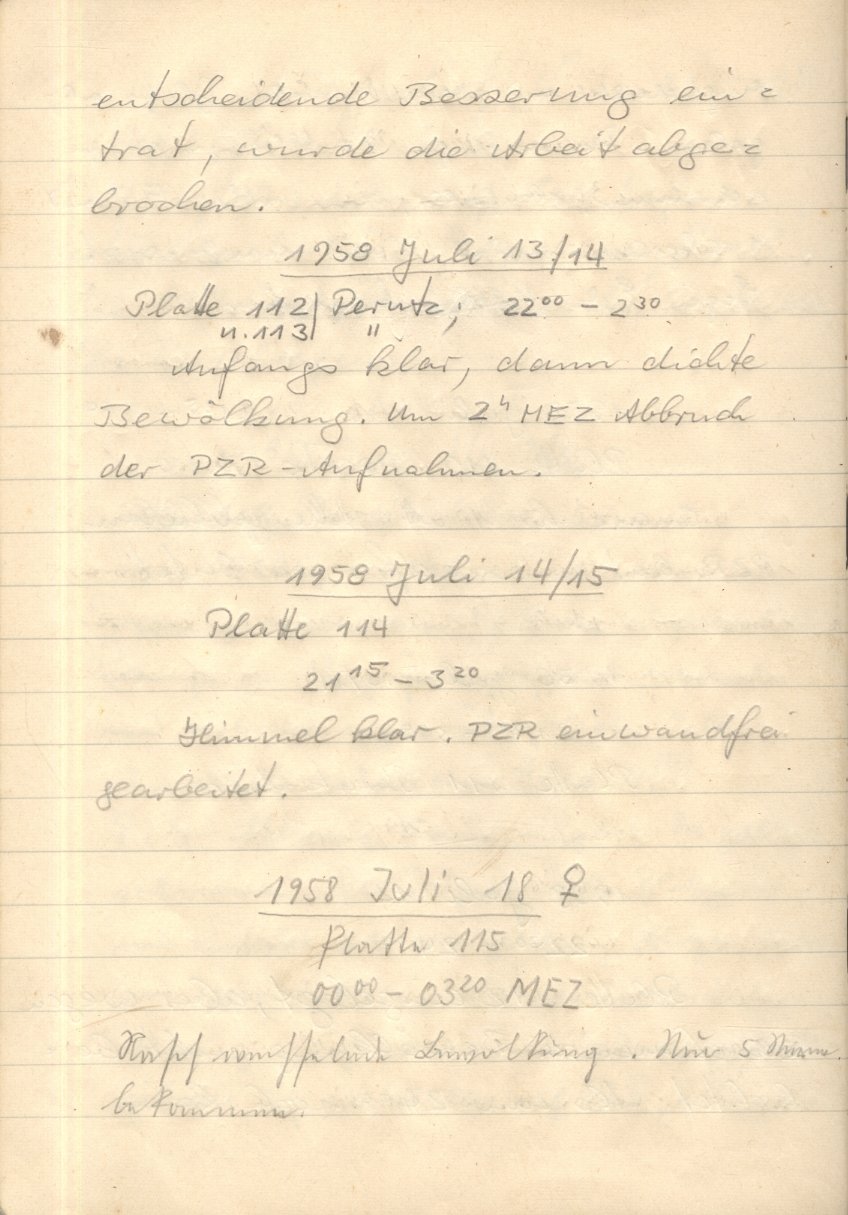 entscheidende Besserung ein=
trat, wurde die Arbeit abge=
brochen.
1958 Juli 13/14
Platte 112 | Perutz; 22⁰⁰ – 2³⁰
u. 113 | "
Anfangs klar, dann dichte
Bewölkung. Um 2ʰ MEZ Abbruch
der PZR-Aufnahmen.
1958 Juli 14/15
Platte 114
21¹⁵ – 3²⁰
Himmel klar. PZR einwandfrei
gearbeitet.
1958 Juli 18 ♀
Platte 115
00⁰⁰ – 03²⁰ MEZ
Rasch wechselnde Bewölkung. Nur 5 Sterne
bekommen.